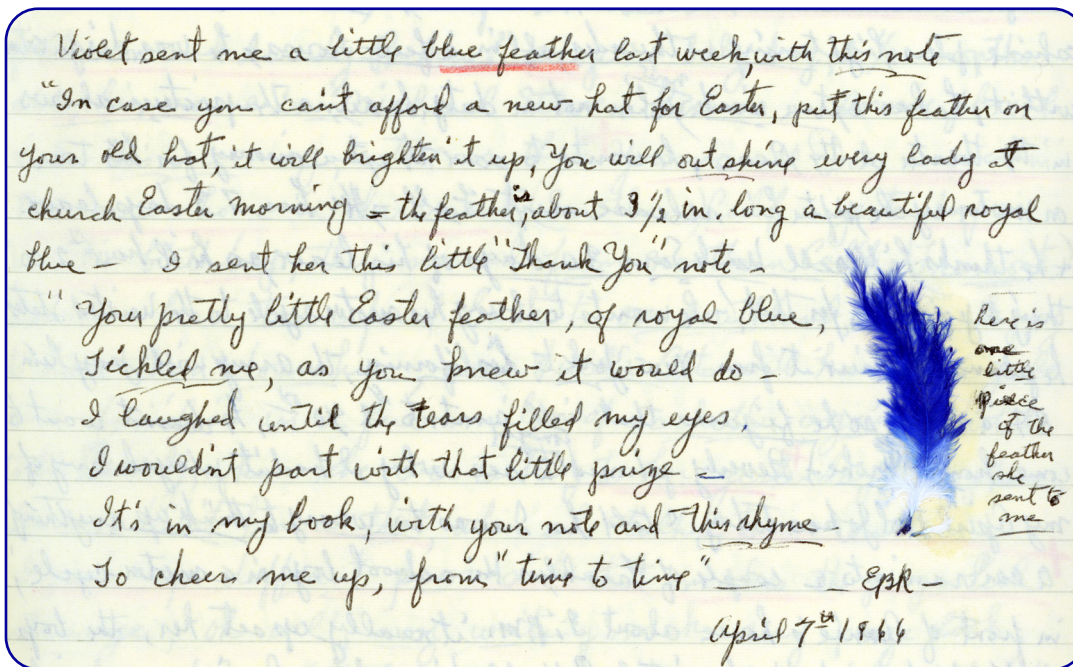 Violet sent me a little blue feather last week, with this note
"In case you can't afford a new hat for Easter, put this feather on
your old hat, it will brighten it up, You will out shine every lady at
church Easter morning = the feather is, about 3 1/2 in. long a beautiful royal
blue — I sent her this little "Thank You" note -
"Your pretty little Easter feather, of royal blue,
Tickled me, as you knew it would do -
I laughed until the tears filled my eyes,
I wouldn't part with that little prize -
It's in my book, with your note and this rhyme -
To cheer me up, from "time to time" — EBR -
April 7th 1966
here is
one
little
piece
of the
feather
she
sent to
me